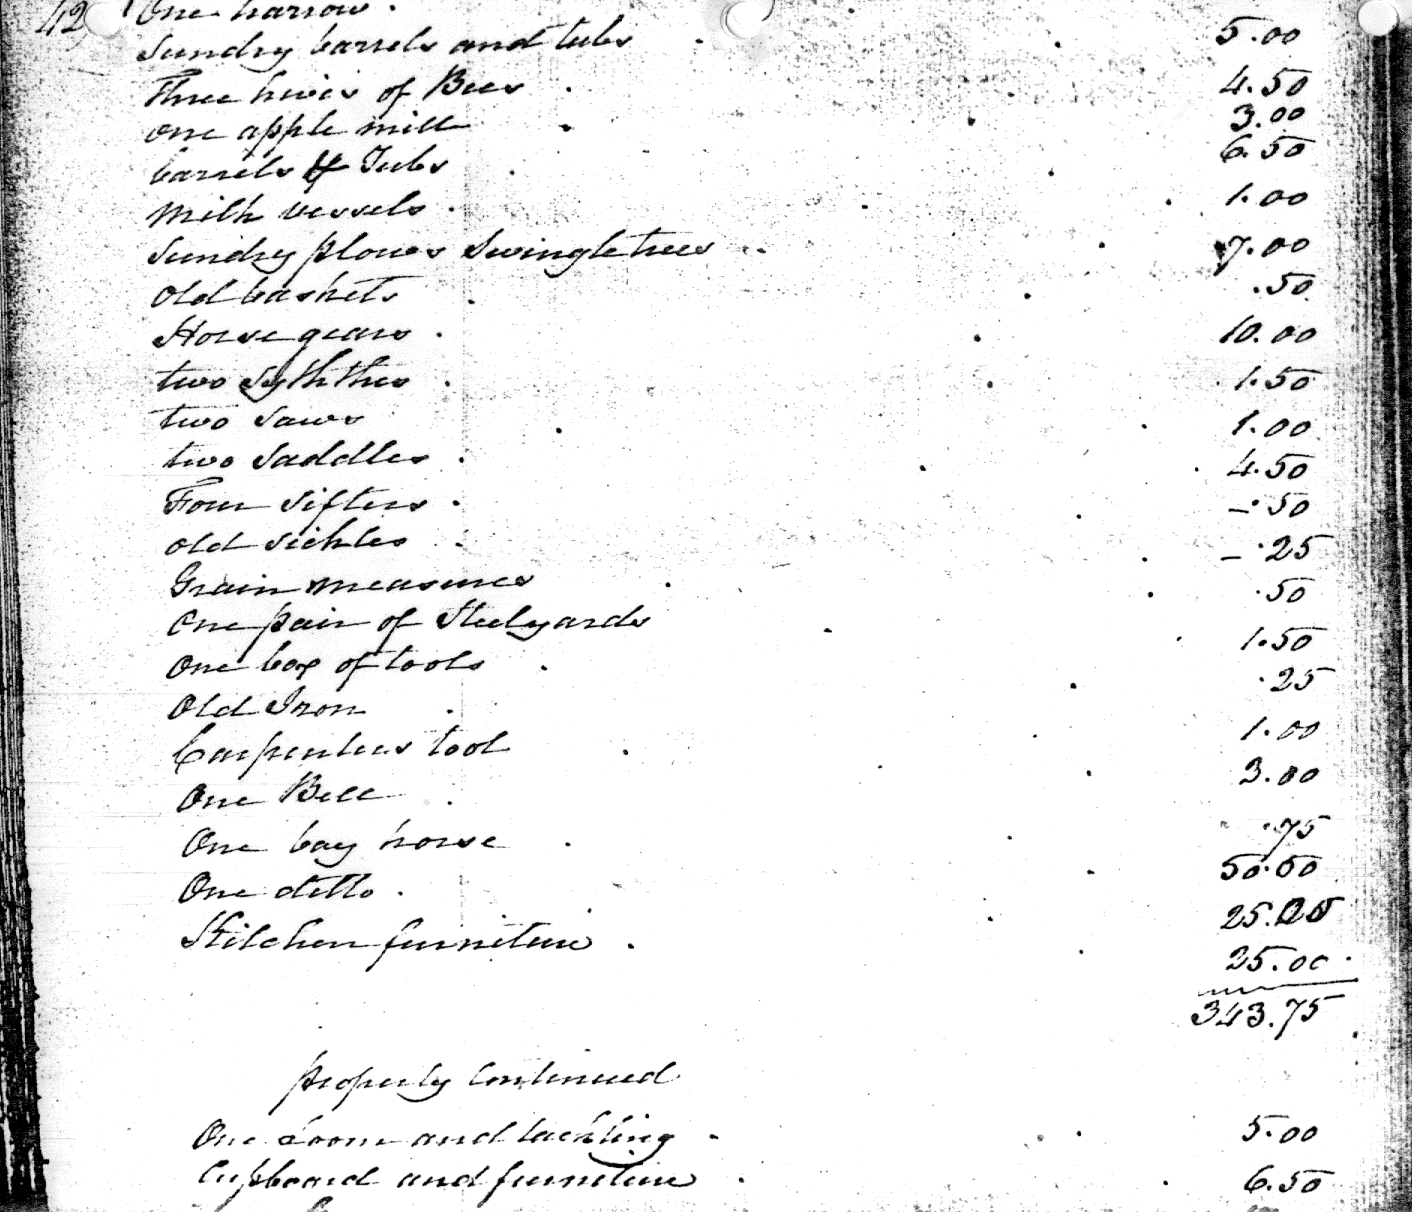 42 One harrow .
Sundry barrels and tubs . . 5.00
Three hives of Bees . . 4.50
one apple mill . . 3.00
barrels & Tubs . . 6.50
Milk vessels . . . 1.00
Sundry plows Swingletrees . . 7.00
old baskets . . .50
Horse gears . . 10.00
two Sythths . . 1.50
two Saws . . 1.00
two Saddles . . . 4.50
Four Sifters . . – .50
old sickles . . – .25
Grain measures . . .50
One pair of Steelyards . . 1.50
One box of tools . . .25
Old Iron . . 1.00
Carpenters tool . . . 3.00
One Bell . . .75
One bay horse . . 50.00
One ditto . . 25.00
Kitchen furniture . . 25.00
343.75
property continued
One Loom and tackling . . 5.00
Cupboard and furniture . . 6.50